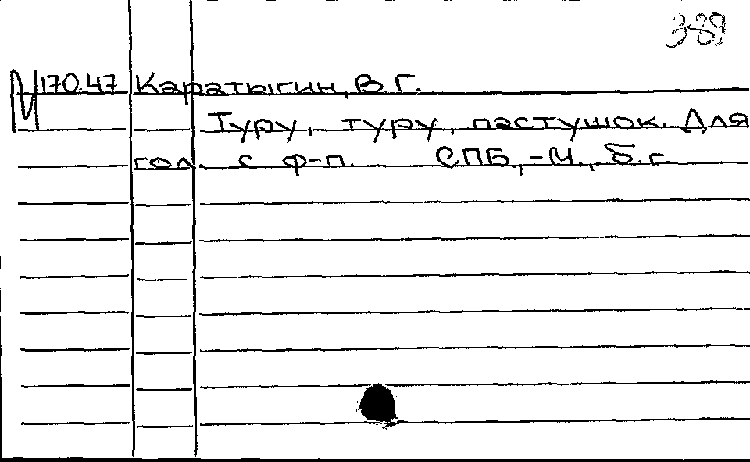 389
М 170.47 Каратыгин, В.Г.
Туру, туру, пастушок. Для
гол. с ф-п. СПБ,-М., б.г.